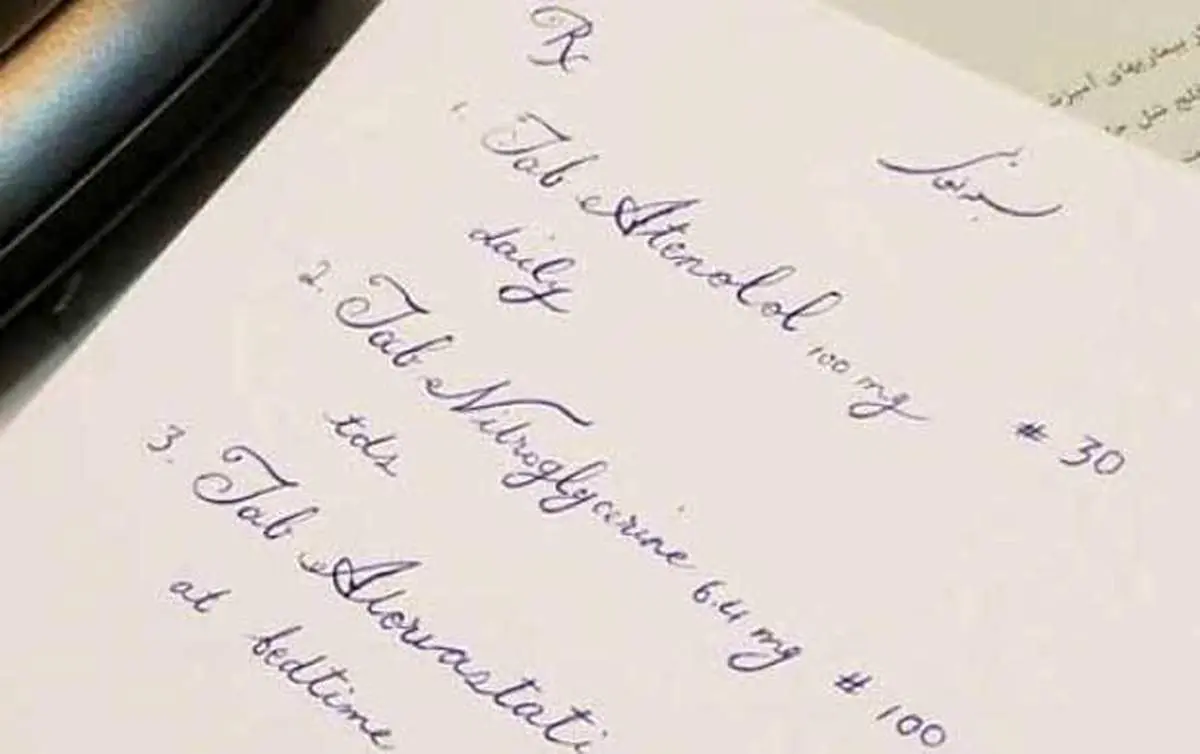 Rx
1. Tab Atenolol 100 mg # 30
daily
2. Tab Nitroglycerine 6.4 mg # 100
tds
3. Tab Atorvastati
at bedtime
بیماریهای آمیزش
فلج شل